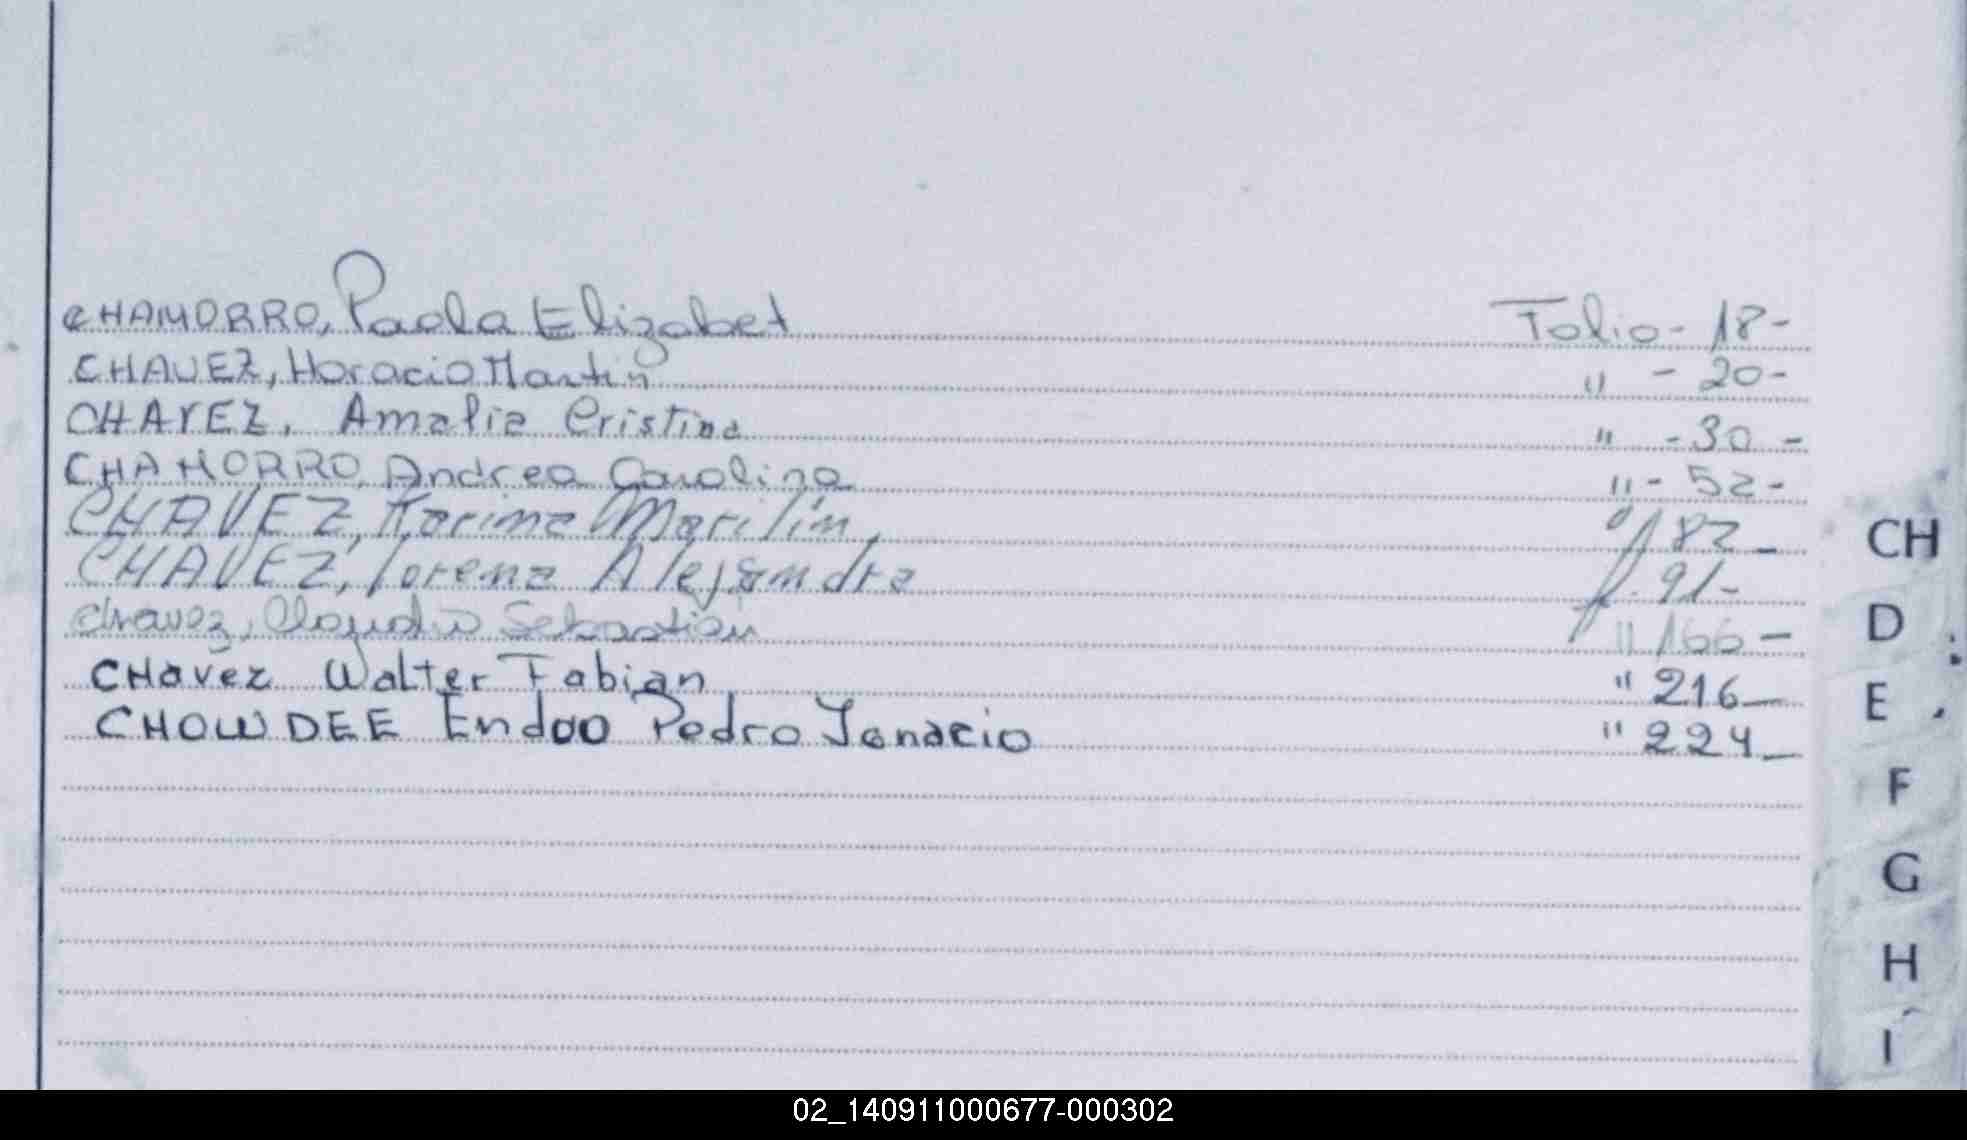 CHAMORRO, Paola Elizabet Folio - 18 -
CHAVEZ, Horacio Martin " - 20 -
CHAVEZ, Amalia Cristina " - 30 -
CHAMORRO, Andrea Carolina " - 52 -
CHAVEZ, Karina Marilín, " 82 -
CHAVEZ, Lorena Alejandra f. 91 -
Chavez, Claudio Sebastián " 166 -
CHavez Walter Fabian " 216 -
CHOWDEE Pedro Ignacio " 224 -
CH
D
E
F
G
H
I
02_140911000677-000302